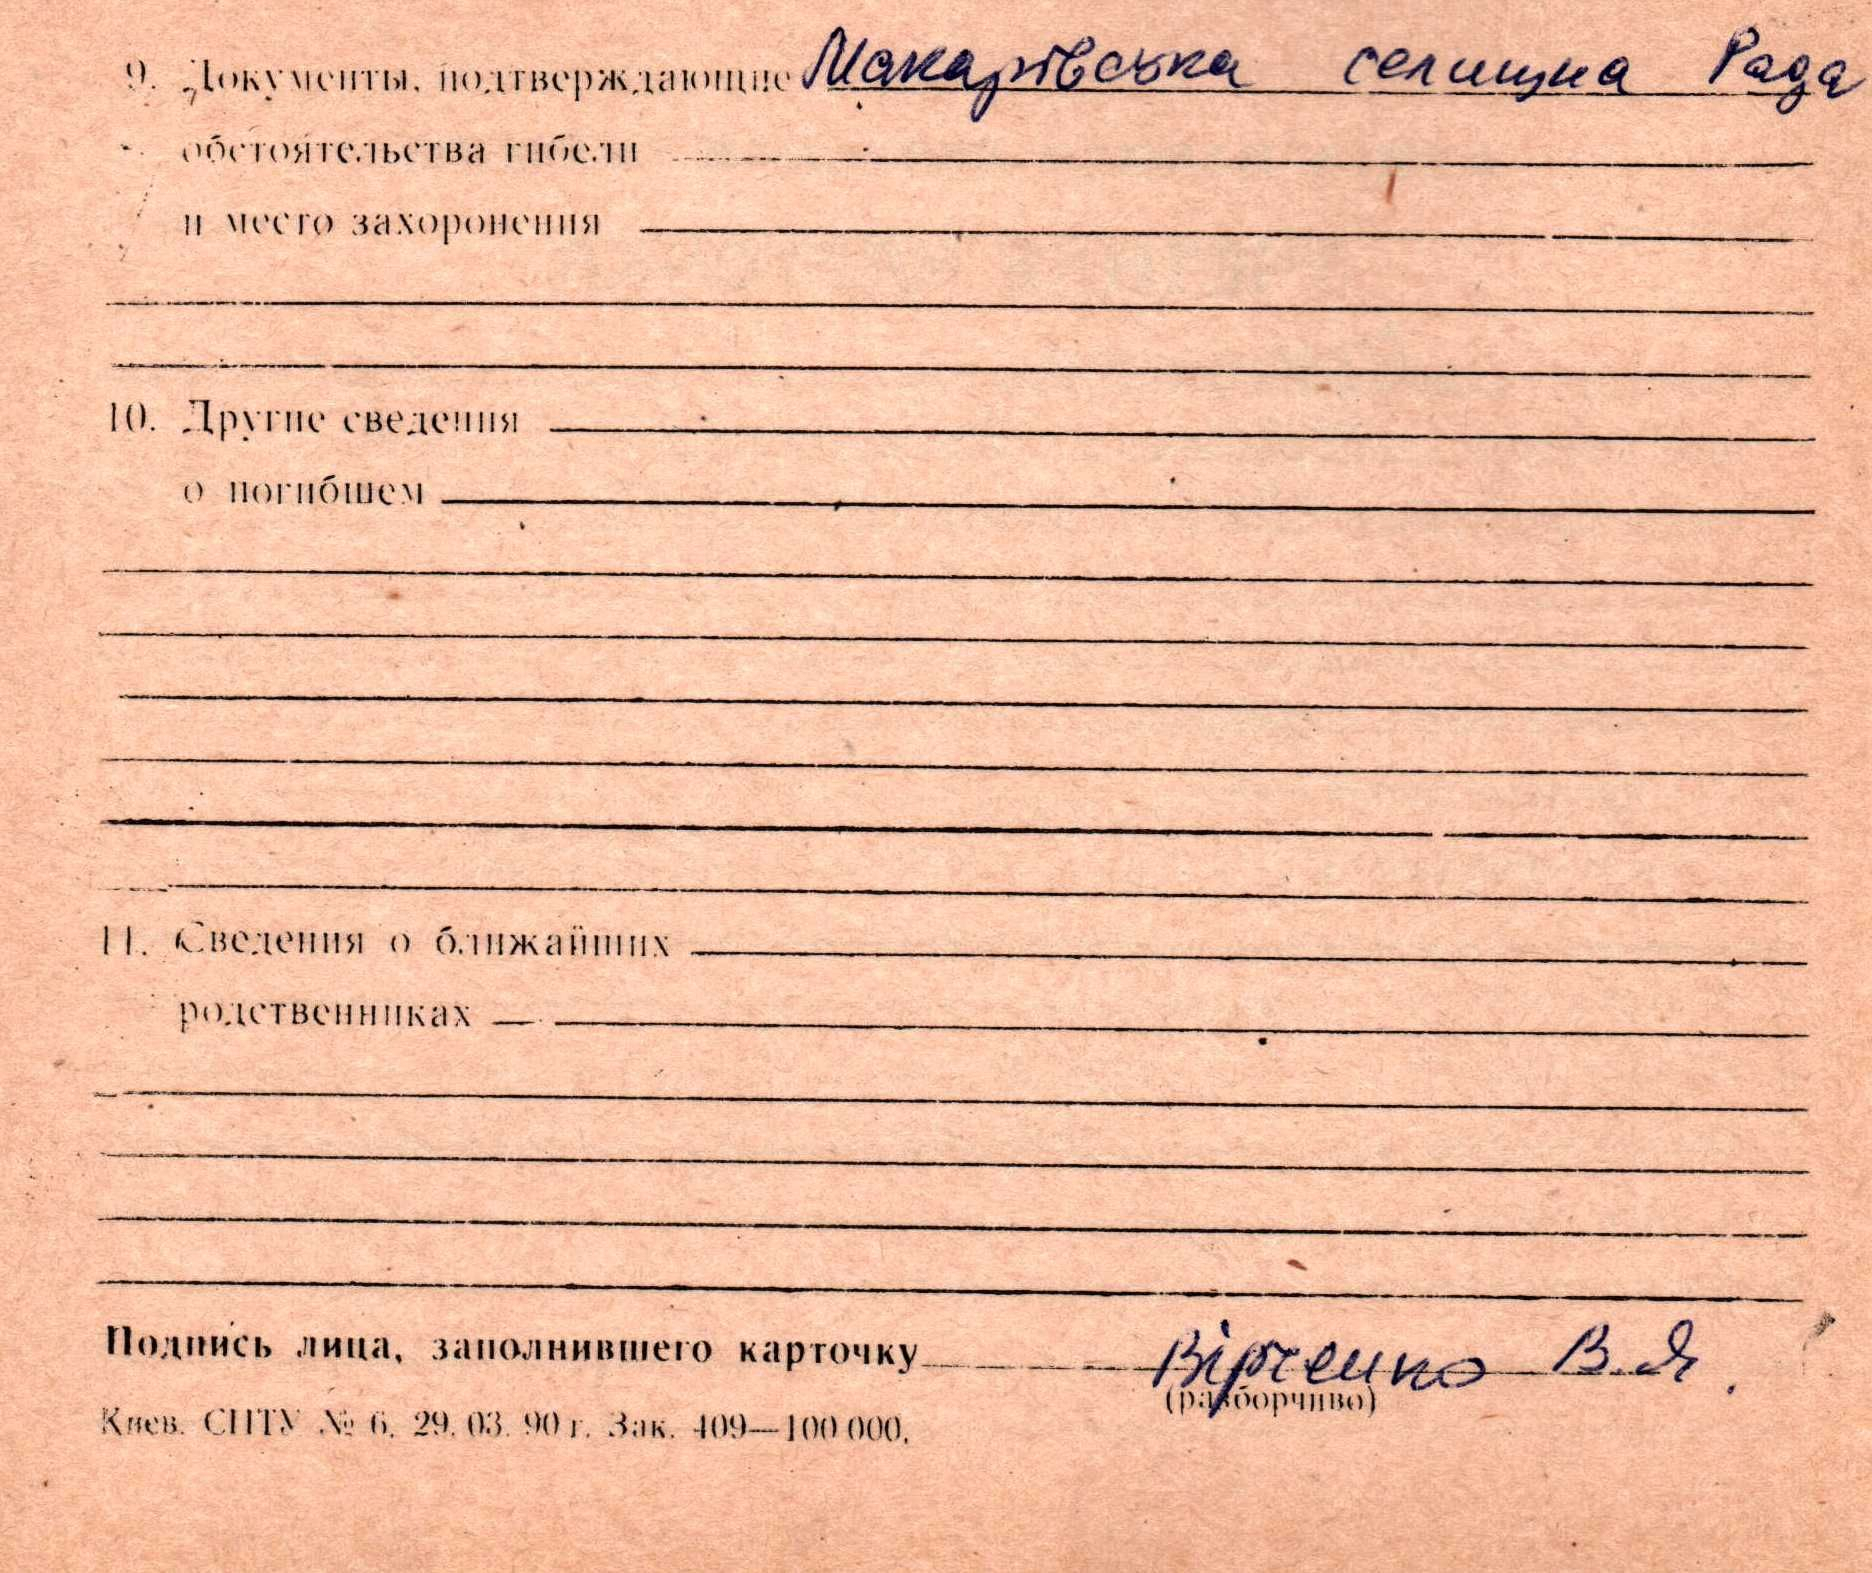 9. Документы, подтверждающие Макарівська селищна Рада
обстоятельства гибели
и место захоронения
10. Другие сведения
о погибшем
11. Сведения о ближайших
родственниках
Подпись лица, заполнившего карточку Вірченко В. Я.
(разборчиво)
Киев. СПТУ № 6. 29. 03. 90 г. Зак. 409—100 000.